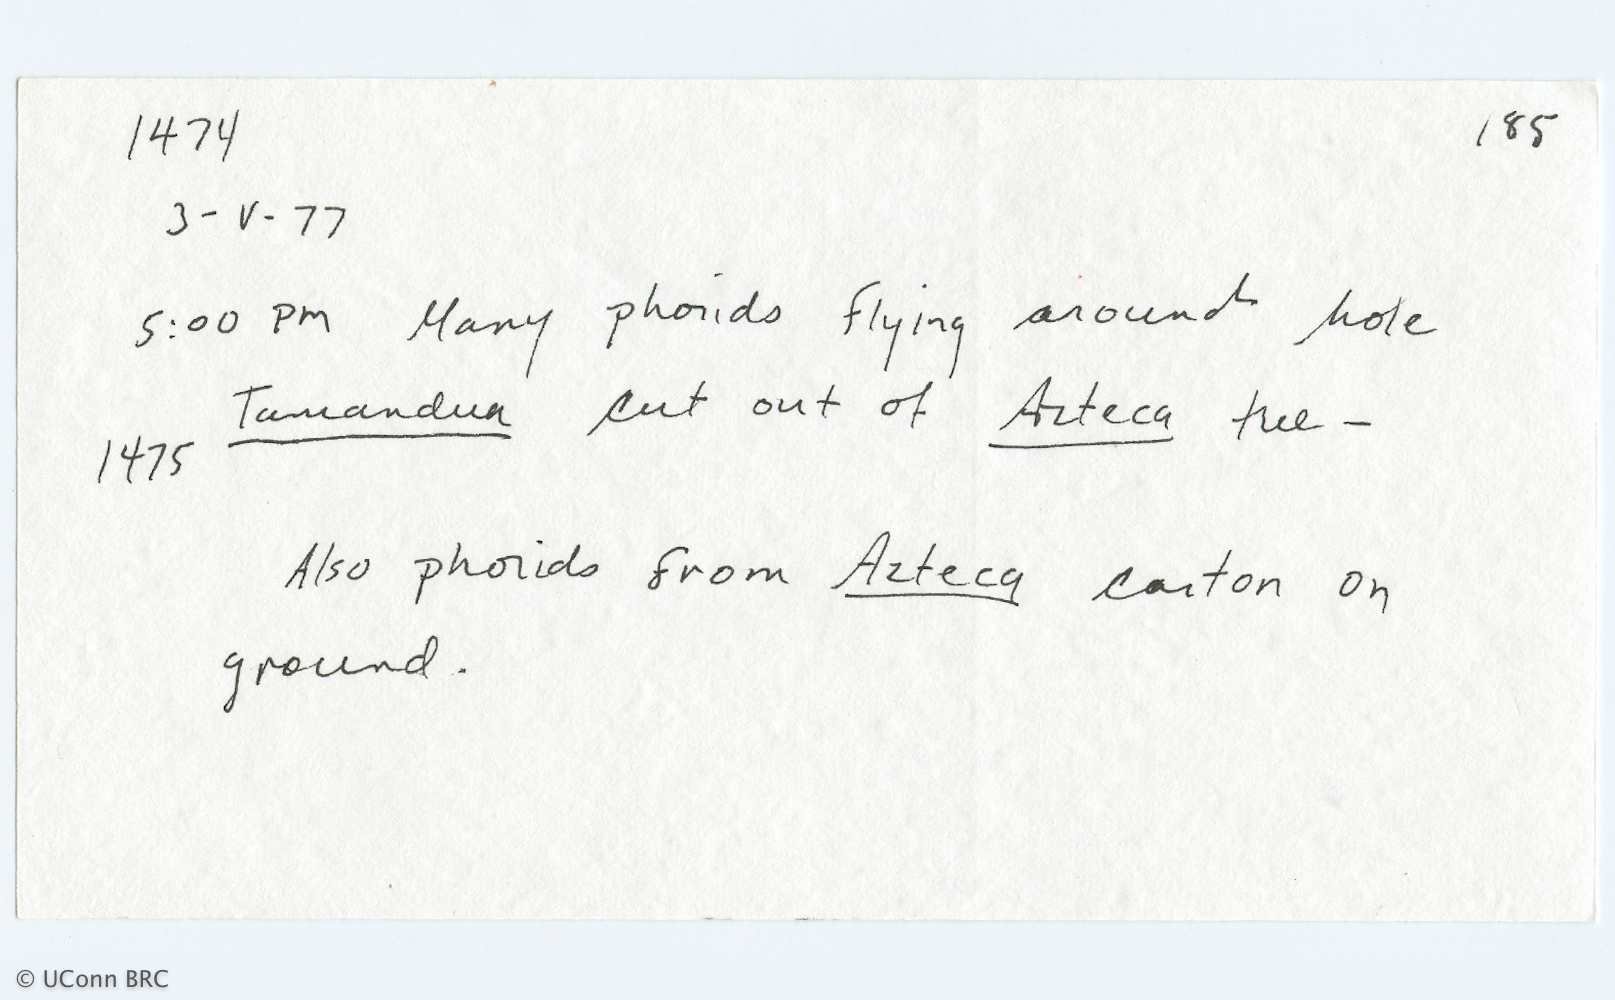 1474
185
3-V-77
5:00 PM Many phorids flying around hole
Tamandua cut out of Azteca tree -
1475
Also phorids from Azteca carton on
ground.
© UConn BRC